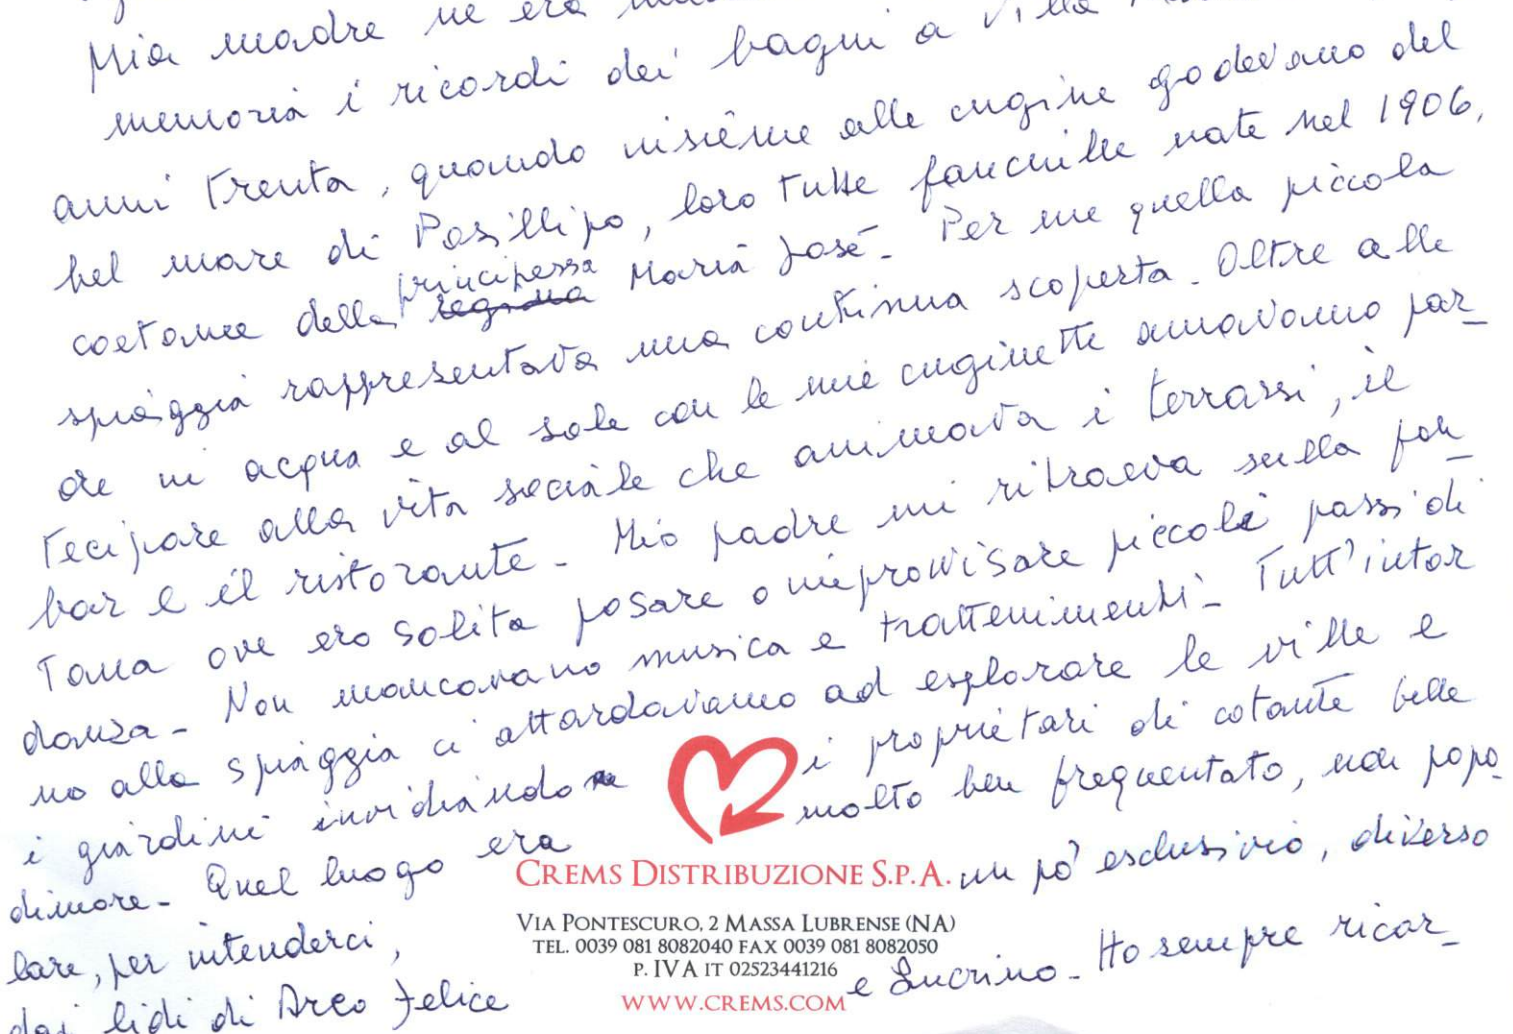 Mia madre ne era
memoria i ricordi dei bagni a Villa
anni Trenta, quando insieme alle cugine godevano del
bel mare di Posillipo, loro tutte fanciulle nate nel 1906,
coetanee della regina principessa Maria José. Per me quella piccola
spiaggia rappresentava una continua scoperta. Oltre alle
ore in acqua e al sole con le mie cuginette amavamo par-
tecipare alla vita sociale che animava i terrazzi, il
bar e il ristorante. Mio padre mi ritraeva sulla fon-
tana ove ero solita posare o improvvisare piccoli passi di
danza. Non mancavano musica e trattenimenti. Tutt'intor
no alla spiaggia ci attardavamo ad esplorare le ville e
i giardini invidiando i proprietari di cotante belle
dimore. Quel luogo era molto ben frequentato, non popo-
lare, per intenderci, un pò esclusivo, diverso
dai lidi di Arco Felice e Lucrino. Ho sempre ricor-
CREMS DISTRIBUZIONE S.P.A.
VIA PONTESCURO, 2 MASSA LUBRENSE (NA)
TEL. 0039 081 8082040 FAX 0039 081 8082050
P. IVA IT 02523441216
WWW.CREMS.COM